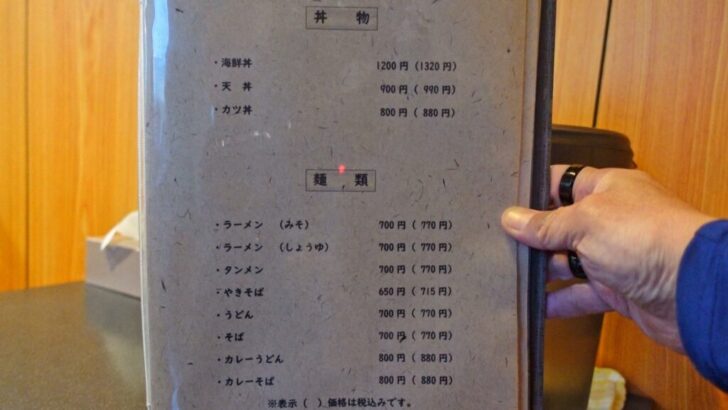 丼 物
・海鮮丼 1200円 (1320円)
・天 丼 900円 ( 990円)
・カツ丼 800円 ( 880円)
麺 類
・ラーメン (みそ) 700円 ( 770円)
・ラーメン (しょうゆ) 700円 ( 770円)
・タンメン 700円 ( 770円)
・やきそば 650円 ( 715円)
・うどん 700円 ( 770円)
・そば 700円 ( 770円)
・カレーうどん 800円 ( 880円)
・カレーそば 800円 ( 880円)
※表示 ( ) 価格は税込みです。